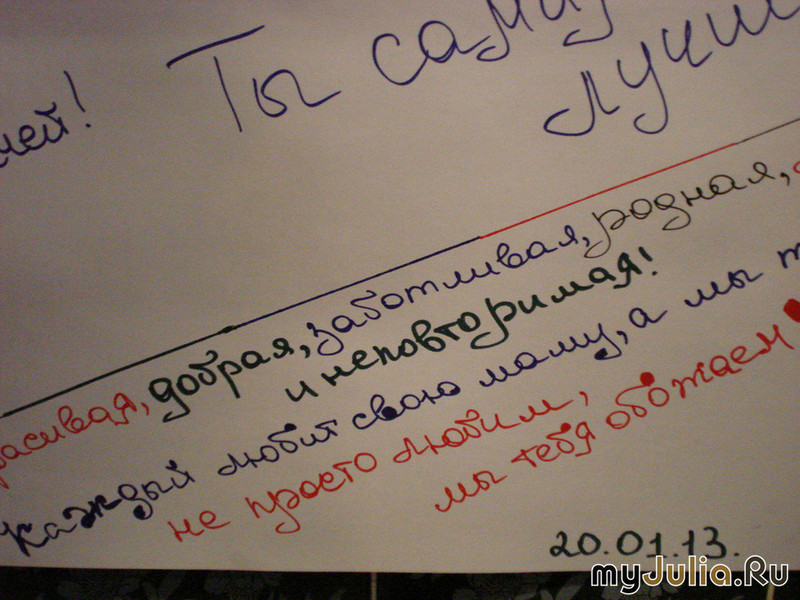 ней! Ты сам
лучш
расивая, добрая, заботливая, родная,
и неповторимая!
Каждый любит свою маму, а мы т
не просто любим,
мы тебя обожаем
20.01.13.
myJulia.Ru